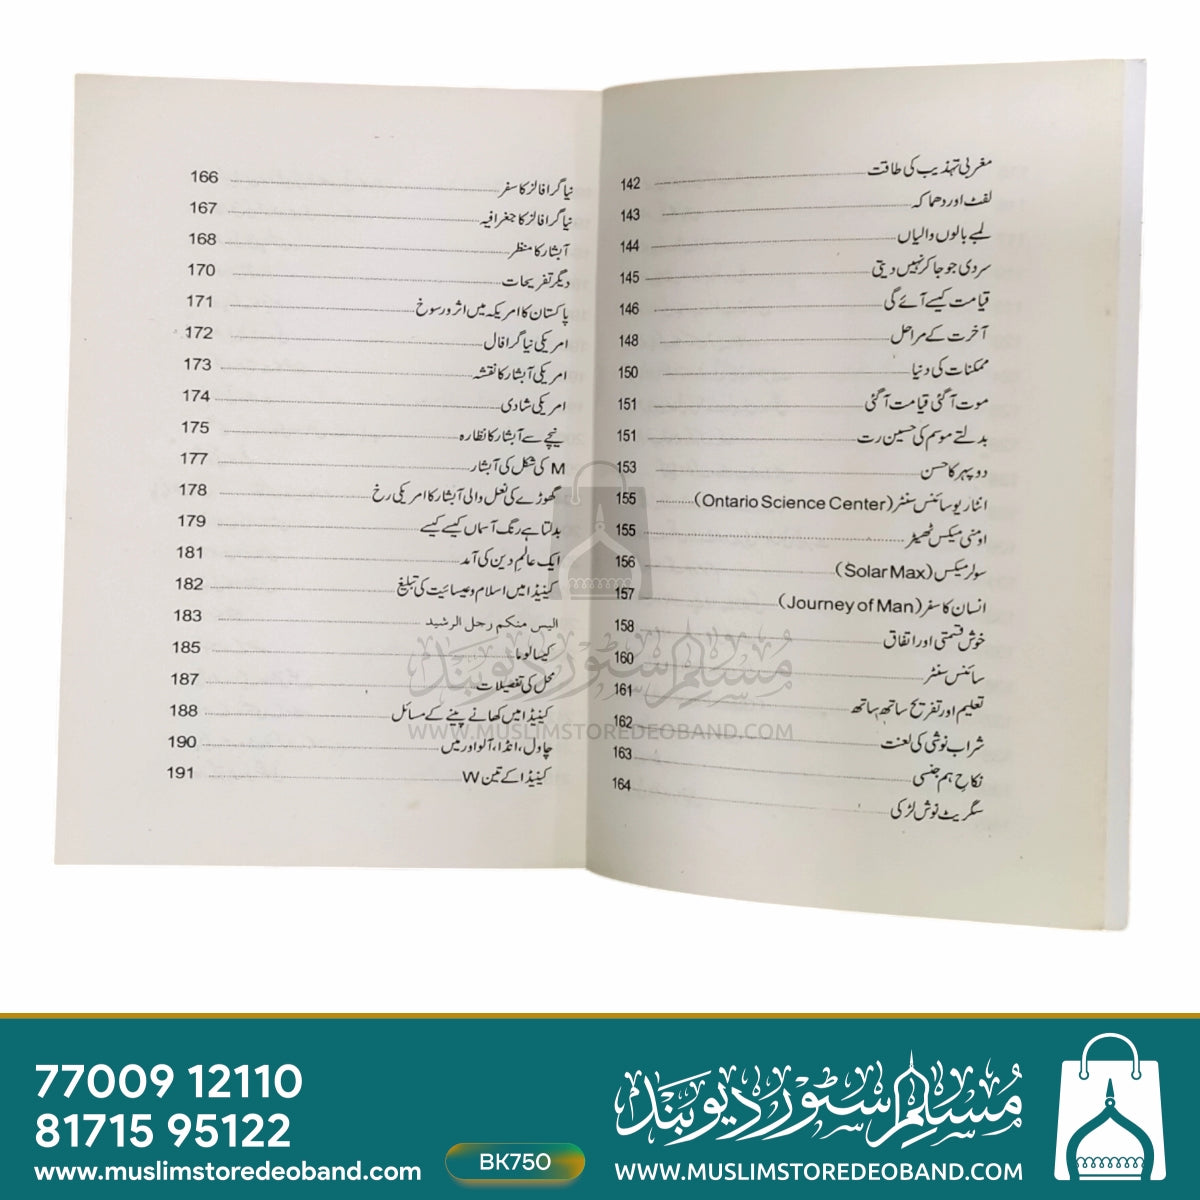 مغربی تہذیب کی طاقت 142
لفٹ اور دھماکہ 143
لمبے بالوں والیاں 144
سردی جو جا کر نہیں دیتی 145
قیامت کیسے آئے گی 146
آخرت کے مراحل 148
ممکنات کی دنیا 150
موت آگئی قیامت آگئی 151
بدلتے موسم کی حسین رت 151
دوپہر کا حسن 153
انٹاریو سائنس سنٹر (Ontario Science Center) 155
اومنی میکس تھیٹر 155
سولر میکس (Solar Max) 156
انسان کا سفر (Journey of Man) 157
خوش قسمتی اور اتفاق 158
سائنس سنٹر 160
تعلیم اور تفریح ساتھ ساتھ 161
شراب نوشی کی لعنت 162
نکاح ہم جنسی 163
سگریٹ نوش لڑکی 164
نیاگرا فالز کا سفر 166
نیاگرا فالز کا جغرافیہ 167
آبشار کا منظر 168
دیگر تفریحات 170
پاکستان کا امریکہ میں اثر و رسوخ 171
امریکی نیاگرا فال 172
امریکی آبشار کا نقشہ 173
امریکی شادی 174
نیچے سے آبشار کا نظارہ 175
M کی شکل کی آبشار 177
گھوڑے کی نعل والی آبشار کا امریکی رخ 178
بدلتا ہے رنگ آسماں کیسے کیسے 179
ایک عالم دین کی آمد 181
کینیڈا میں اسلام و عیسائیت کی تبلیغ 182
الیس منکم رجل الرشید 183
کیسا لوما 185
محل کی تفصیلات 187
کینیڈا میں کھانے پینے کے مسائل 188
چاول، انڈا، آلو اور میں 190
کینیڈا کے تین W 191
مسلم سٹور دیوبند
WWW.MUSLIMSTOREDEOBAND.COM
77009 12110
81715 95122
www.muslimstoredeoband.com
BK750
مسلم سٹور دیوبند
WWW.MUSLIMSTOREDEOBAND.COM